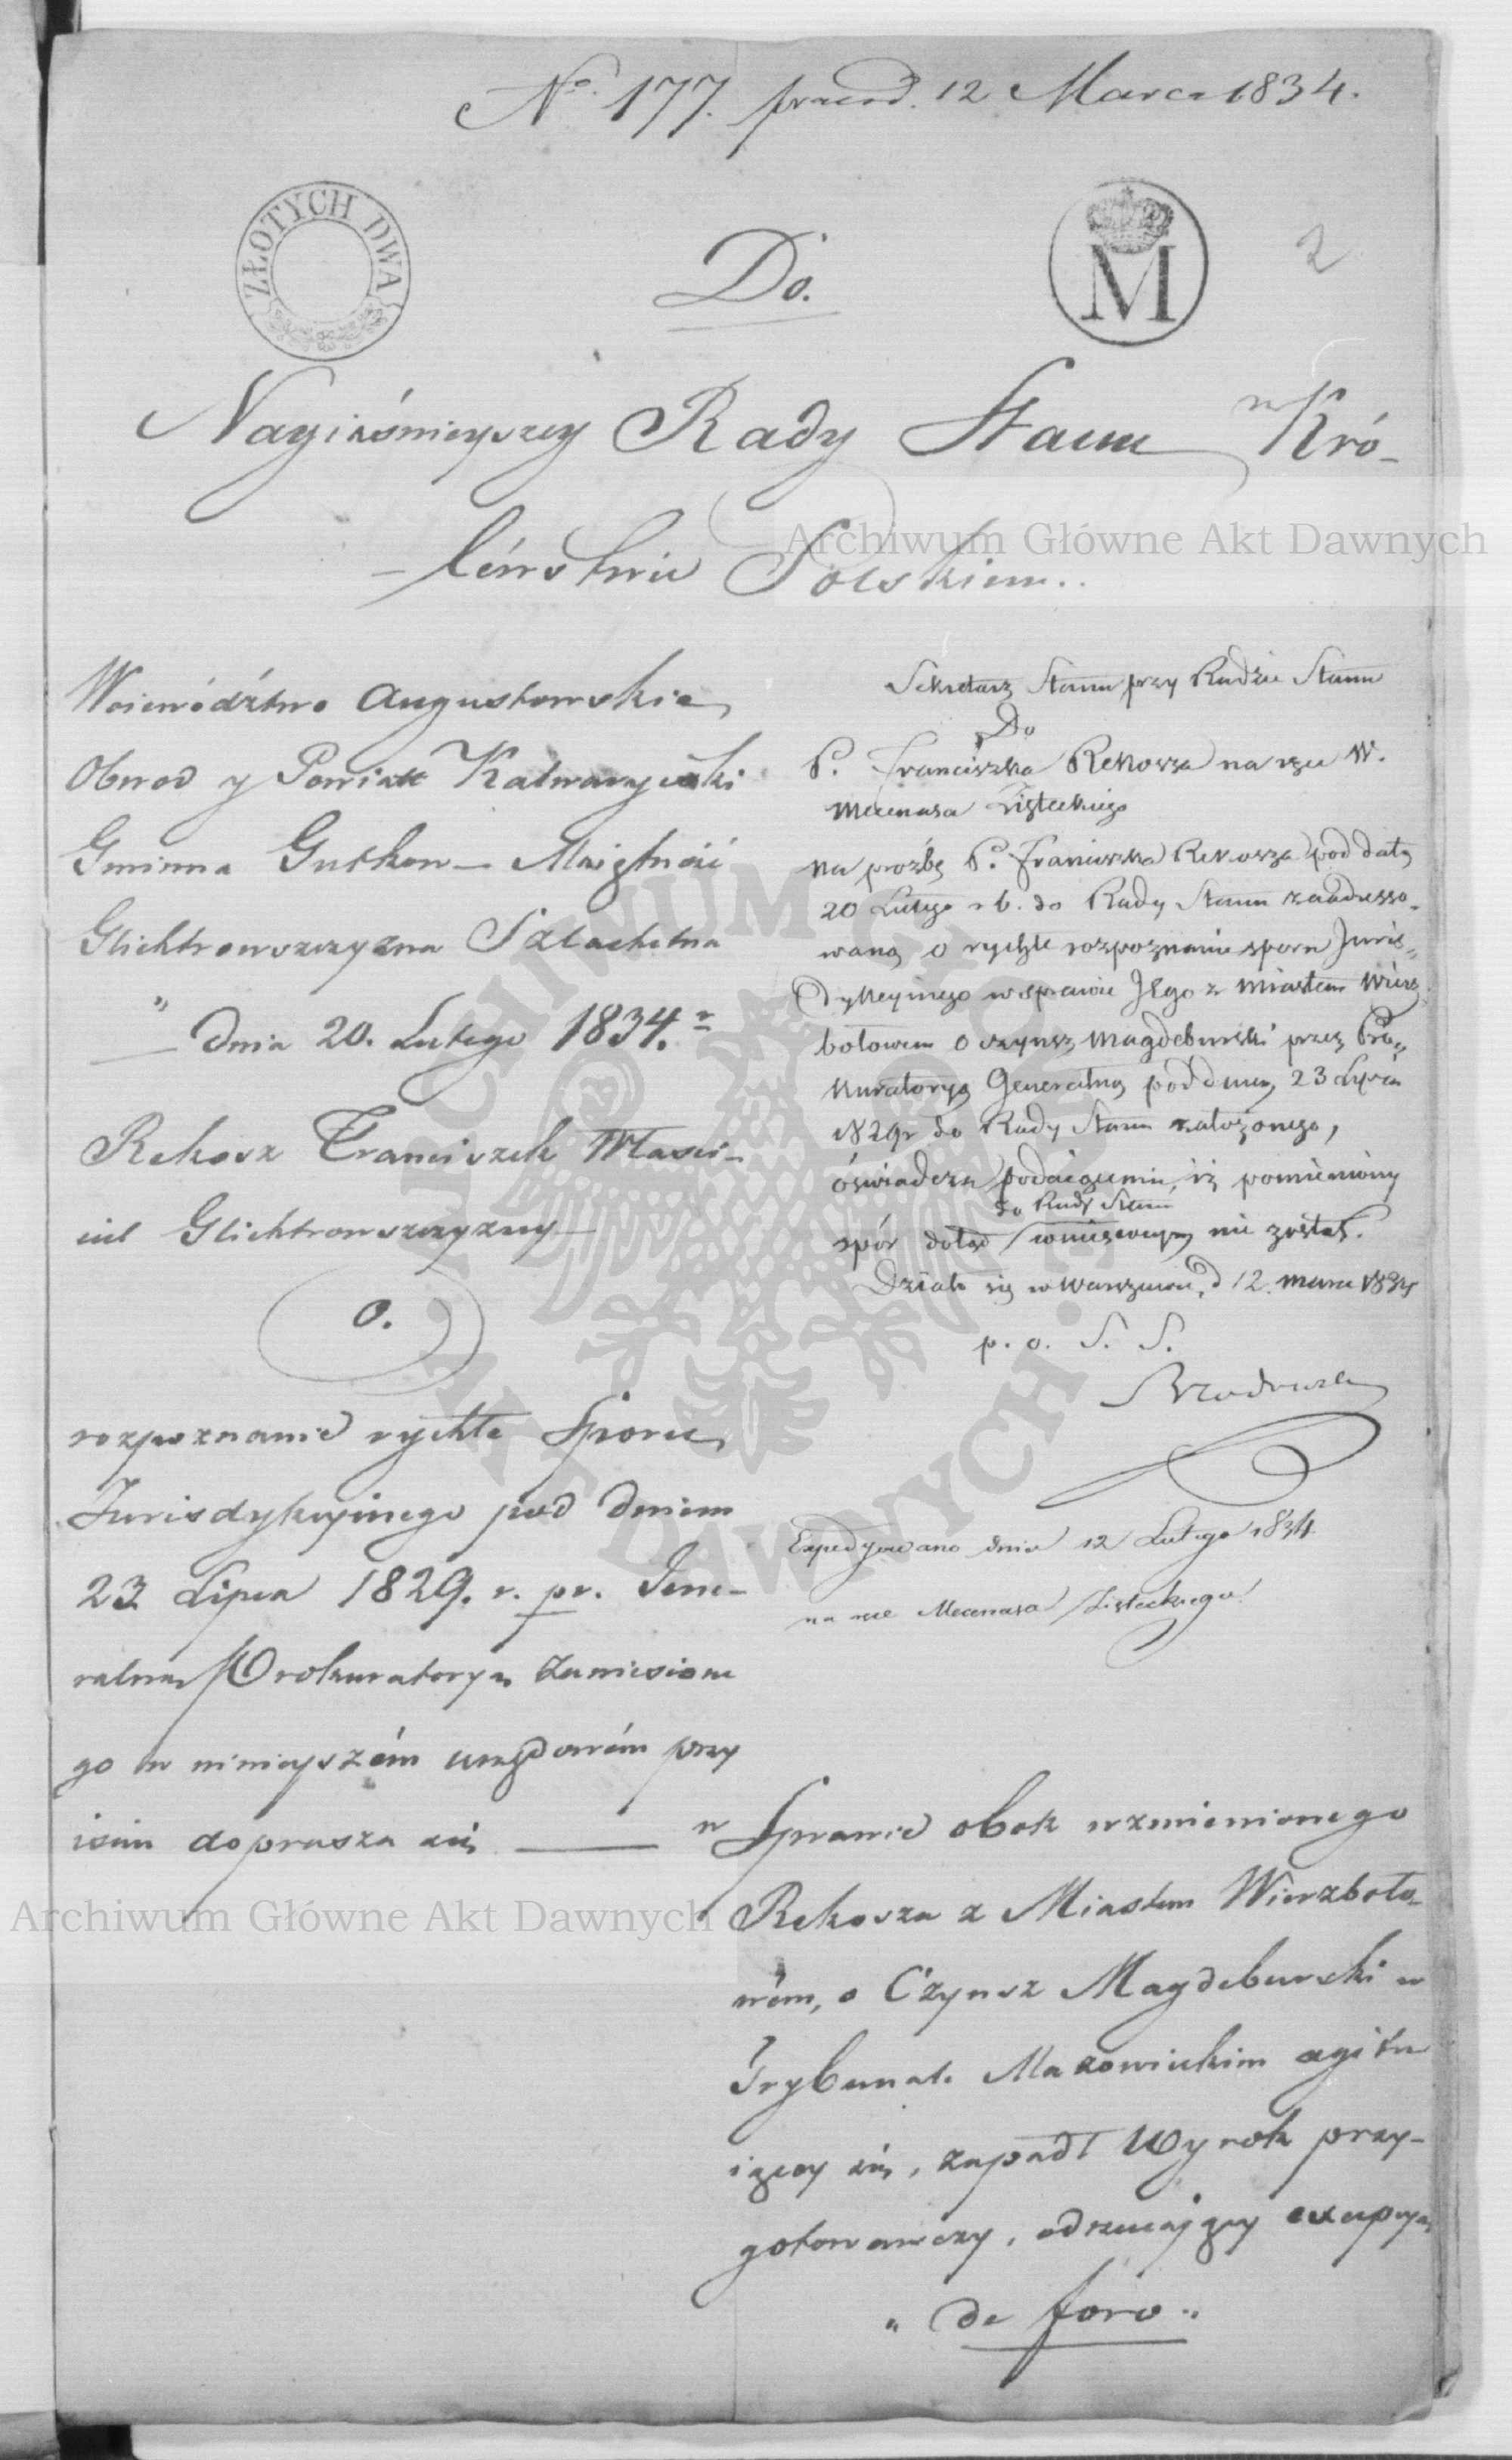 No. 177. prezd. 12 Marca 1834.
ZŁOTYCH DWA
Do.
M
2
Nayiaśnieyszey Rady Stanu w Kró-
léwstwie Polskiem..
Archiwum Główne Akt Dawnych
Woiewództwo Augustowskie,
Obwod y Powiatt Kalwaryiski
Gminna Gutkow- Maiętność
Glichtrowszczyzna Szlachetna
" dnia 20. Lutego 1834.r
Rekosz Franciszek Własci-
ciel Glichtrowszczyzny
O.
rozpoznanie rychłe Sporu,
Jurisdykcyinego pod dniem
23 Lipca 1829. r. pr. Jene-
ralną Prokuratoryą zaniesione
go w ninieyszém urzędowém przy
isciu doprasza się
Sekretarz Stanu przy Radzie Stanu
Do
P. Franciszka Rekosza na ręce W.
Mecenasa Zisteckiego
Na prozbę P. Franciszka Rekosza pod datą
20 Lutego r.b. do Rady Stanu zaadresso-
waną o rychłe rozpoznanie sporu Juris-
dykcyinego w sprawie Jego z Miastem Wierz-
bołowem o czynsz Magdeburski przez Pro-
kuratoryą Generalną pod dniem 23 Lipca
1829r do Rady Stanu założonego,
oświadcza podaiącemu, iż pomieniony
do Rady Stanu
spór dotąd wniesionym nie został.
Działo się w Warszawie, d 12. marca 1834
p. o. S. S.
Expedyowano dnia 12 Lutego 1834
na ręce Mecenasa Zisteckiego
w Sprawie obok wzmienionego
Rekosza z Miastem Wierzboło-
wém, o Czynsz Magdeburski w
Trybunale Mazowieckim agitu
iącey się, zapadł Wyrok przy-
gotowawczy, odrzucaiący excepcyą
" de foro "
Archiwum Główne Akt Dawnych
ARCHIWUM GŁÓWNE AKT DAWNYCH